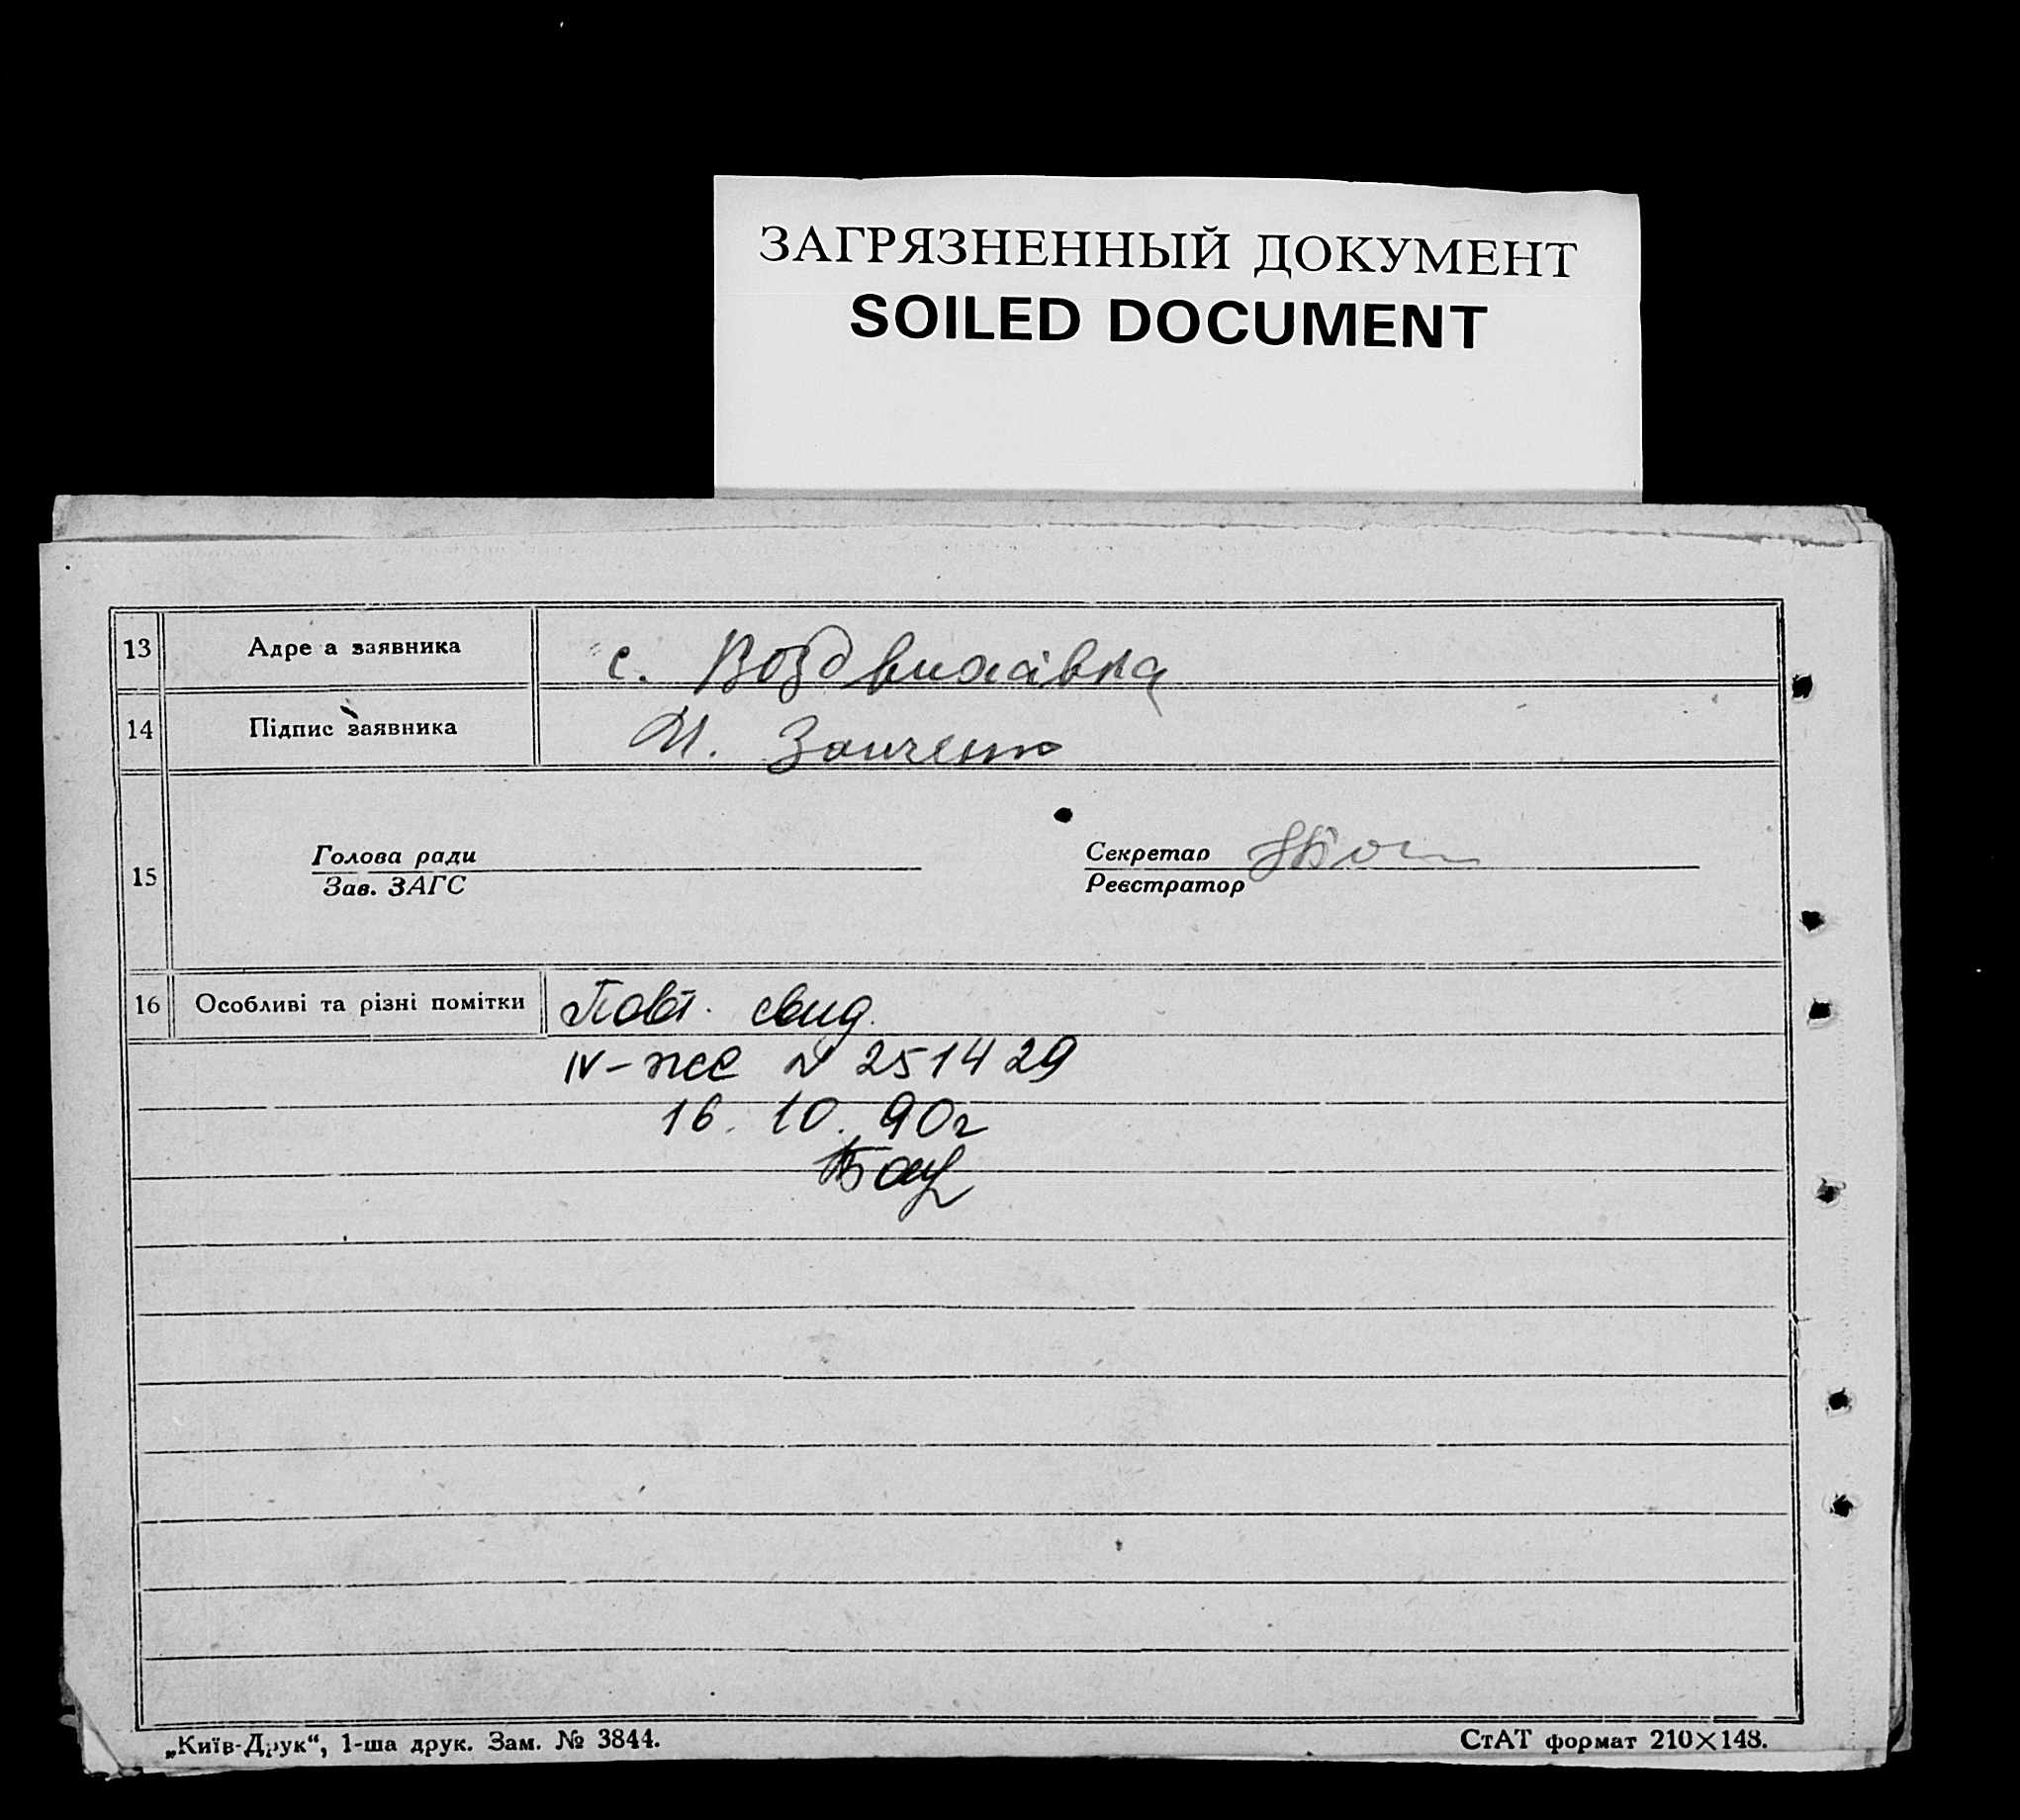 ЗАГРЯЗНЕННЫЙ ДОКУМЕНТ
SOILED DOCUMENT
13 Адре а заявника с. Воздвижівка
14 Підпис заявника И. Заиченко
15 Голова ради
Зав. ЗАГС
Секретар
Реєстратор
16 Особливі та різні помітки Повт. свид.
IV-ЖС № 251429
16. 10. 90г
„Київ-Друк“, 1-ша друк. Зам. № 3844.
СтАТ формат 210×148.